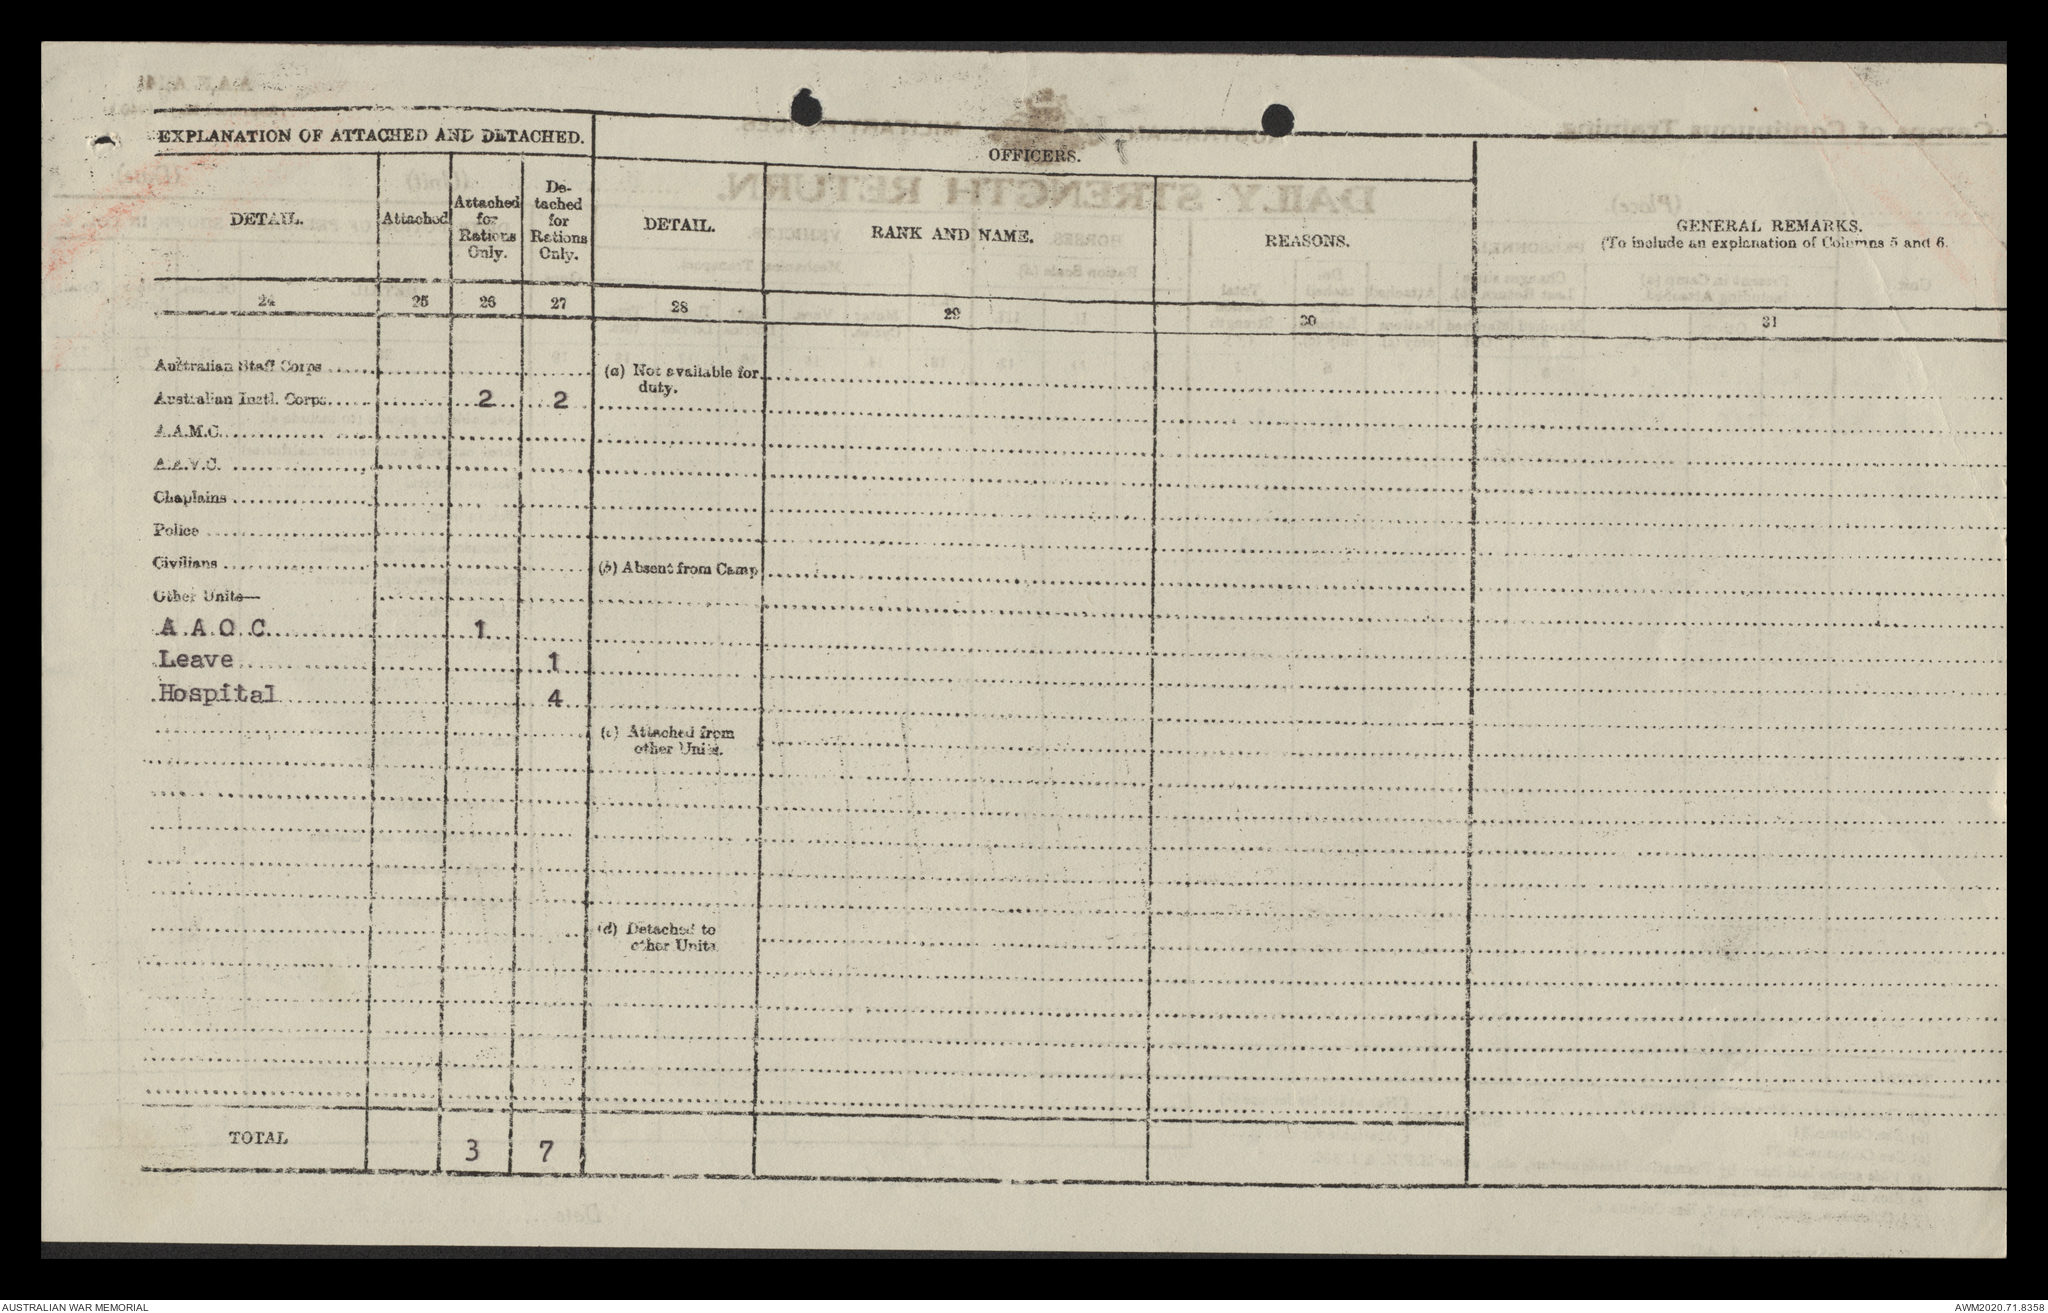 EXPLANATION OF ATTACHED AND DETACHED.
OFFICERS.
DETAIL.
Attached
Attached for Rations Only.
De-tached for Rations Only.
DETAIL.
RANK AND NAME.
REASONS.
GENERAL REMARKS.
(To include an explanation of Columns 5 and 6.
24 25 26 27 28 29 30 31
Australian Staff Corps
(a) Not available for duty.
Australian Instl. Corps 2 2
A.A.M.C.
A.A.V.C.
Chaplains
Police
Civilians
(b) Absent from Camp
Other Units—
A A O C 1
Leave 1
Hospital 4
(c) Attached from other Units.
(d) Detached to other Units
TOTAL 3 7
DAILY STRENGTH RETURN.
AUSTRALIAN WAR MEMORIAL
AWM2020.71.8358